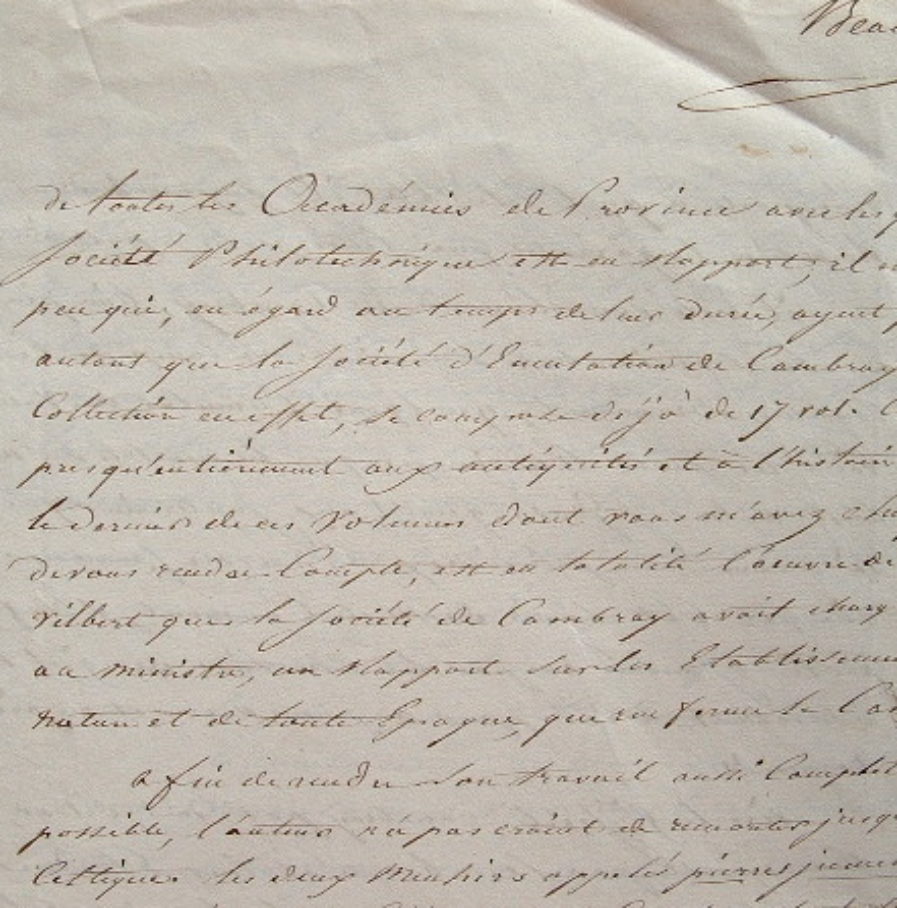 Beau
de toutes les Académies de Province avec les q
Société Philotechnique est en rapport, il n
peu qui, eu égard au temps de leur durée, ayent p
autant que la Société d'Emulation de Cambray
Collection en effet, se compose déjà de 17 vol. C
presqu'entièrement aux antiquités et à l'histoir
le dernier de ces Volumes dont vous m'avez cha
de vous rendre Compte, est en totalité l'oeuvre de
Vilbert que la Société de Cambray avait charg
au ministre, un Rapport sur les Etablissemen
nature et de toute Epoque, que renferme le Cam
afin de rendre Son travail aussi Complet
possible, l'auteur n'a pas craint de remonter jusqu
Celtique. les deux Menhirs appelés pierres jumel